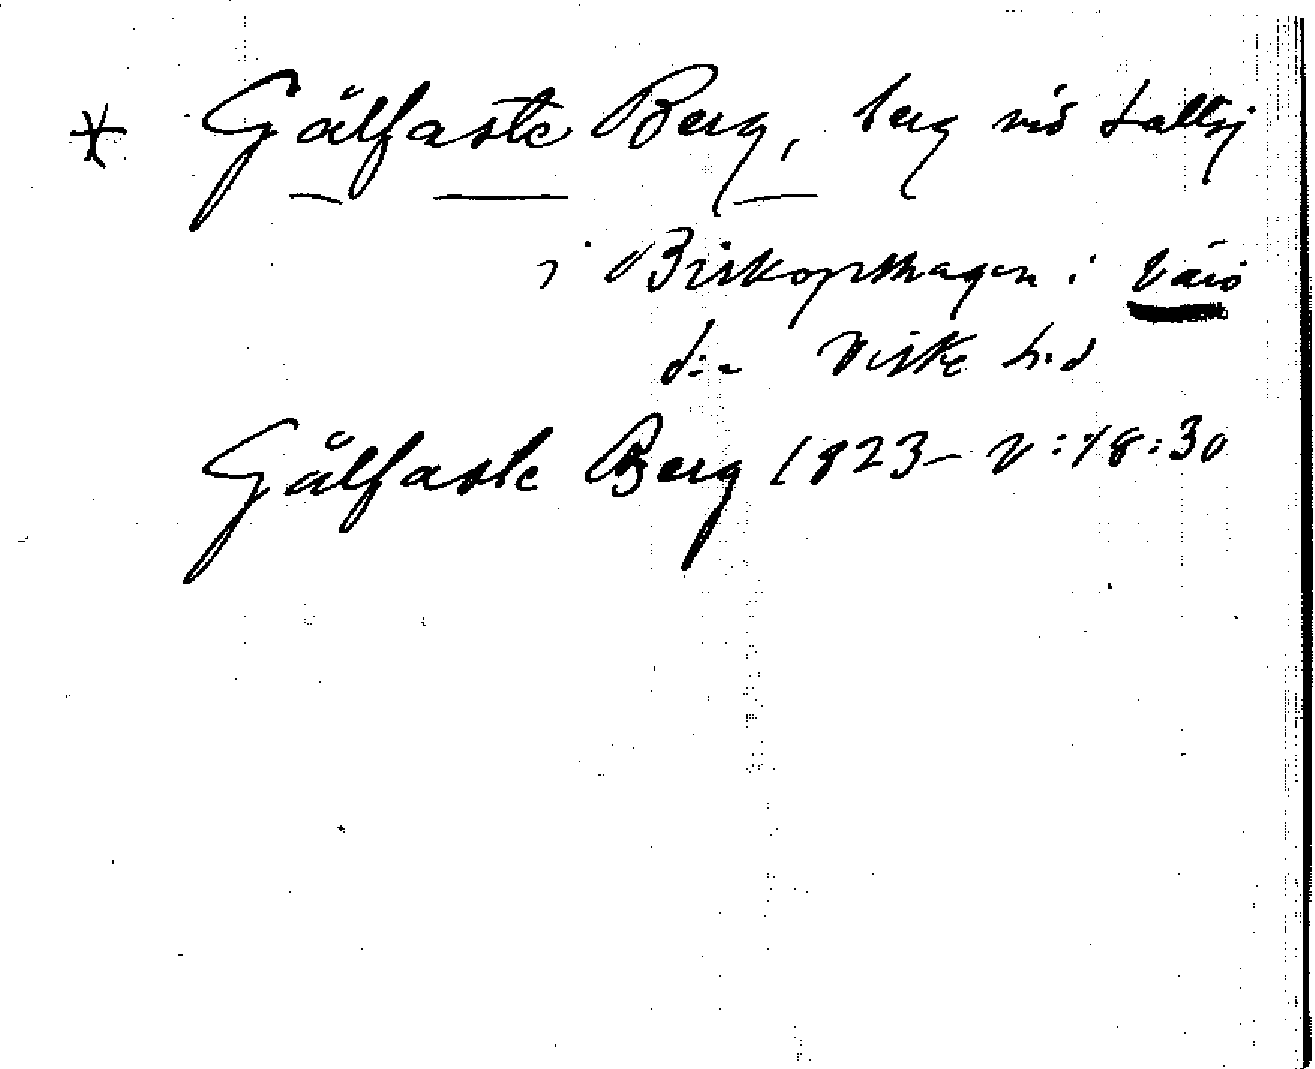 * Gälfaste Berg, berg vid Lallyj
i Biskopshagen i Värö
s:n Viske h:d
Gälfaste Berg 1823 – V:18:30